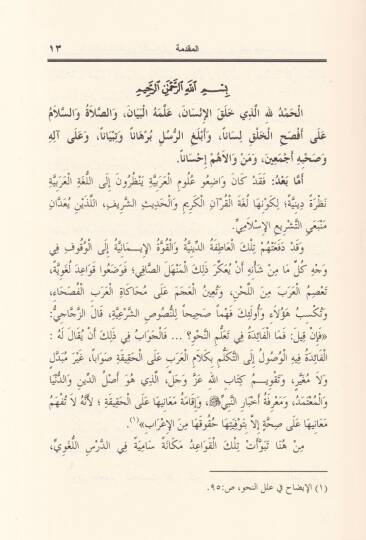 المقدمة ١٣
بِسْمِ اللَّهِ الرَّحْمَنِ الرَّحِيمِ
الْحَمْدُ لله الَّذِي خَلَقَ الإِنْسَانَ، عَلَّمَهُ الْبَيَانَ، وَالصَّلاَةُ وَالسَّلاَمُ
عَلَى أَفْصَحِ الْخَلْقِ لِسَاناً، وَأَبْلَغِ الرُّسُلِ بُرْهَاناً وَتِبْيَاناً، وَعَلَى آلِهِ
وَصَحْبِهِ أَجْمَعِينَ، وَمَنْ وَالاَهُمْ إِحْسَاناً.
أَمَّا بَعْدُ: فَقَدْ كَانَ وَاضِعُو عُلُومِ الْعَرَبِيَّةِ يَنْظُرُونَ إِلَى اللُّغَةِ الْعَرَبِيَّةِ
نَظْرَةً دِينِيَّةً؛ لِكَوْنِهَا لُغَةَ الْقُرْآنِ الْكَرِيمِ وَالْحَدِيثِ الشَّرِيفِ، اللَّذَيْنِ يُعَدَّانِ
مَنْبَعَيِ التَّشْرِيعِ الإِسْلاَمِيِّ.
وَقَدْ دَفَعَتْهُمْ تِلْكَ الْعَاطِفَةُ الدِّينِيَّةُ وَالْقُوَّةُ الإِيمَانِيَّةُ إِلَى الْوُقُوفِ فِي
وَجْهِ كُلِّ مَا مِنْ شَأْنِهِ أَنْ يُعَكِّرَ ذَلِكَ الْمَنْهَلَ الصَّافِي؛ فَوَضَعُوا قَوَاعِدَ لُغَوِيَّةً،
تَعْصِمُ الْعَرَبَ مِنَ اللَّحْنِ، وَتُعِينُ الْعَجَمَ عَلَى مُحَاكَاةِ الْعَرَبِ الْفُصَحَاءِ،
وَتُكْسِبُ هَؤُلاَءِ وَأُولَئِكَ فَهْماً صَحِيحاً لِلنُّصُوصِ الشَّرْعِيَّةِ، قَالَ الزَّجَّاجِيُّ:
«فَإِنْ قِيلَ: فَمَا الْفَائِدَةُ فِي تَعَلُّمِ النَّحْوِ؟ ... فَالْجَوَابُ فِي ذَلِكَ أَنْ يُقَالَ لَهُ :
الْفَائِدَةُ فِيهِ الْوُصُولُ إِلَى التَّكَلُّمِ بِكَلاَمِ الْعَرَبِ عَلَى الْحَقِيقَةِ صَوَاباً، غَيْرَ مُبَدَّلٍ
وَلاَ مُغَيَّرٍ، وَتَقْوِيمُ كِتَابِ اللهِ عَزَّ وَجَلَّ، الَّذِي هُوَ أَصْلُ الدِّينِ وَالدُّنْيَا
وَالْمُعْتَمَدُ، وَمَعْرِفَةُ أَخْبَارِ النَّبِيِّ ﷺ، وَإِقَامَةُ مَعَانِيهَا عَلَى الْحَقِيقَةِ ؛ لأَنَّهُ لاَ تُفْهَمُ
مَعَانِيهَا عَلَى صِحَّةٍ إِلاَّ بِتَوْفِيَتِهَا حُقُوقَهَا مِنَ الإِعْرَابِ»(١).
مِنْ هُنَا تَبَوَّأَتْ تِلْكَ الْقَوَاعِدُ مَكَانَةً سَامِيَةً فِي الدَّرْسِ اللُّغَوِيِّ،
(١) الإيضاح في علل النحو، ص:٩٥.